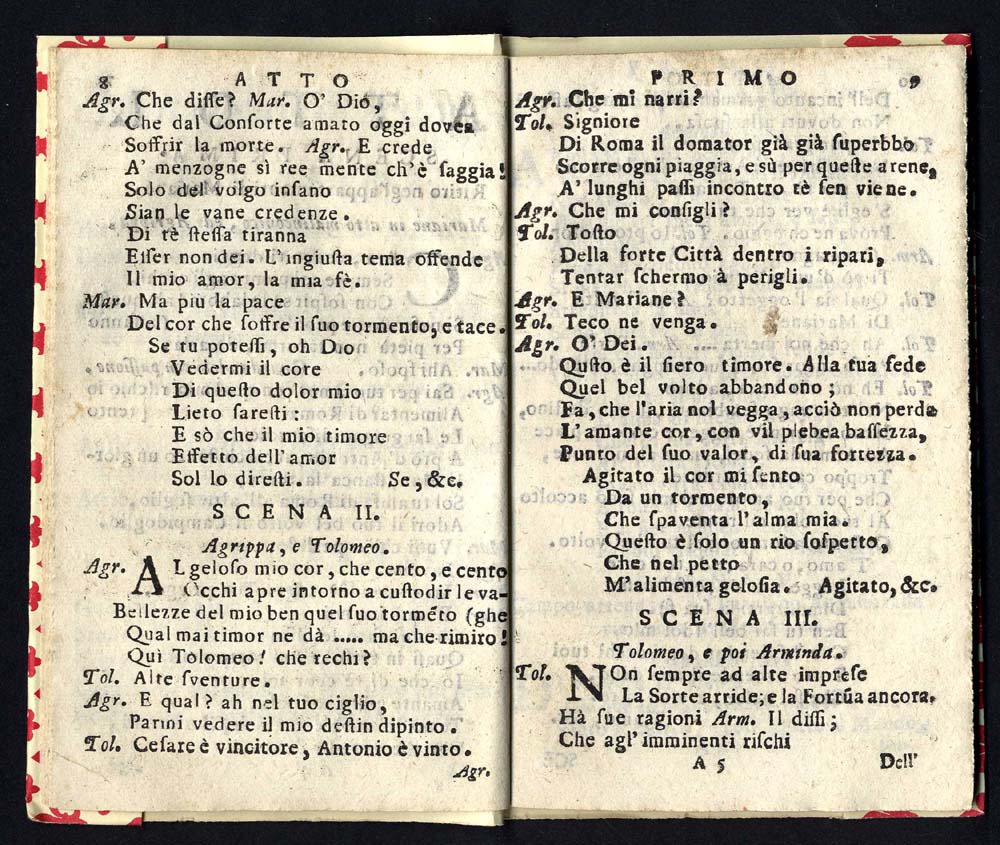 8 ATTO
Agr. Che disse? Mar. O' Dio,
Che dal Consorte amato oggi dovea
Soffrir la morte. Agr. E crede
A' menzogne sì ree mente ch'è saggia!
Solo del volgo insano
Sian le vane credenze.
Di tè stessa tiranna
Esser non dei. L'ingiusta tema offende
Il mio amor, la mia fè.
Mar. Ma più la pace
Del cor che soffre il suo tormento, e tace.
Se tu potessi, oh Dio
Vedermi il core
Di questo dolor mio
Lieto saresti:
E sò che il mio timore
Effetto dell'amor
Sol lo diresti. Se, &c.
SCENA II.
Agrippa, e Tolomeo.
Agr. AL geloso mio cor, che cento, e cento
Occhi apre intorno a custodir le va-
Bellezze del mio ben quel suo torméto (ghe
Qual mai timor ne dà ..... ma che rimiro!
Quì Tolomeo! che rechi?
Tol. Alte sventure.
Agr. E qual? ah nel tuo ciglio,
Parmi vedere il mio destin dipinto.
Tol. Cesare è vincitore, Antonio è vinto.
Agr.
PRIMO 9
Agr. Che mi narri?
Tol. Signiore
Di Roma il domator già già superbbo
Scorre ogni piaggia, e sù per queste arene,
A' lunghi passi incontro tè sen viene.
Agr. Che mi consigli?
Tol. Tosto
Della forte Città dentro i ripari,
Tentar schermo à perigli.
Agr. E Mariane?
Tol. Teco ne venga.
Agr. O' Dei.
Qusto è il fiero timore. Alla tua fede
Quel bel volto abbandono;
Fa, che l'aria nol vegga, acciò non perda
L'amante cor, con vil plebea bassezza,
Punto del suo valor, di sua fortezza.
Agitato il cor mi sento
Da un tormento,
Che spaventa l'alma mia.
Questo è solo un rio sospetto,
Che nel petto
M'alimenta gelosia. Agitato, &c.
SCENA III.
Tolomeo, e poi Arminda.
Tol. NOn sempre ad alte imprese
La Sorte arride; e la Fortũa ancora.
Hà sue ragioni Arm. Il dissi;
Che agl'imminenti rischi
A 5 Dell'